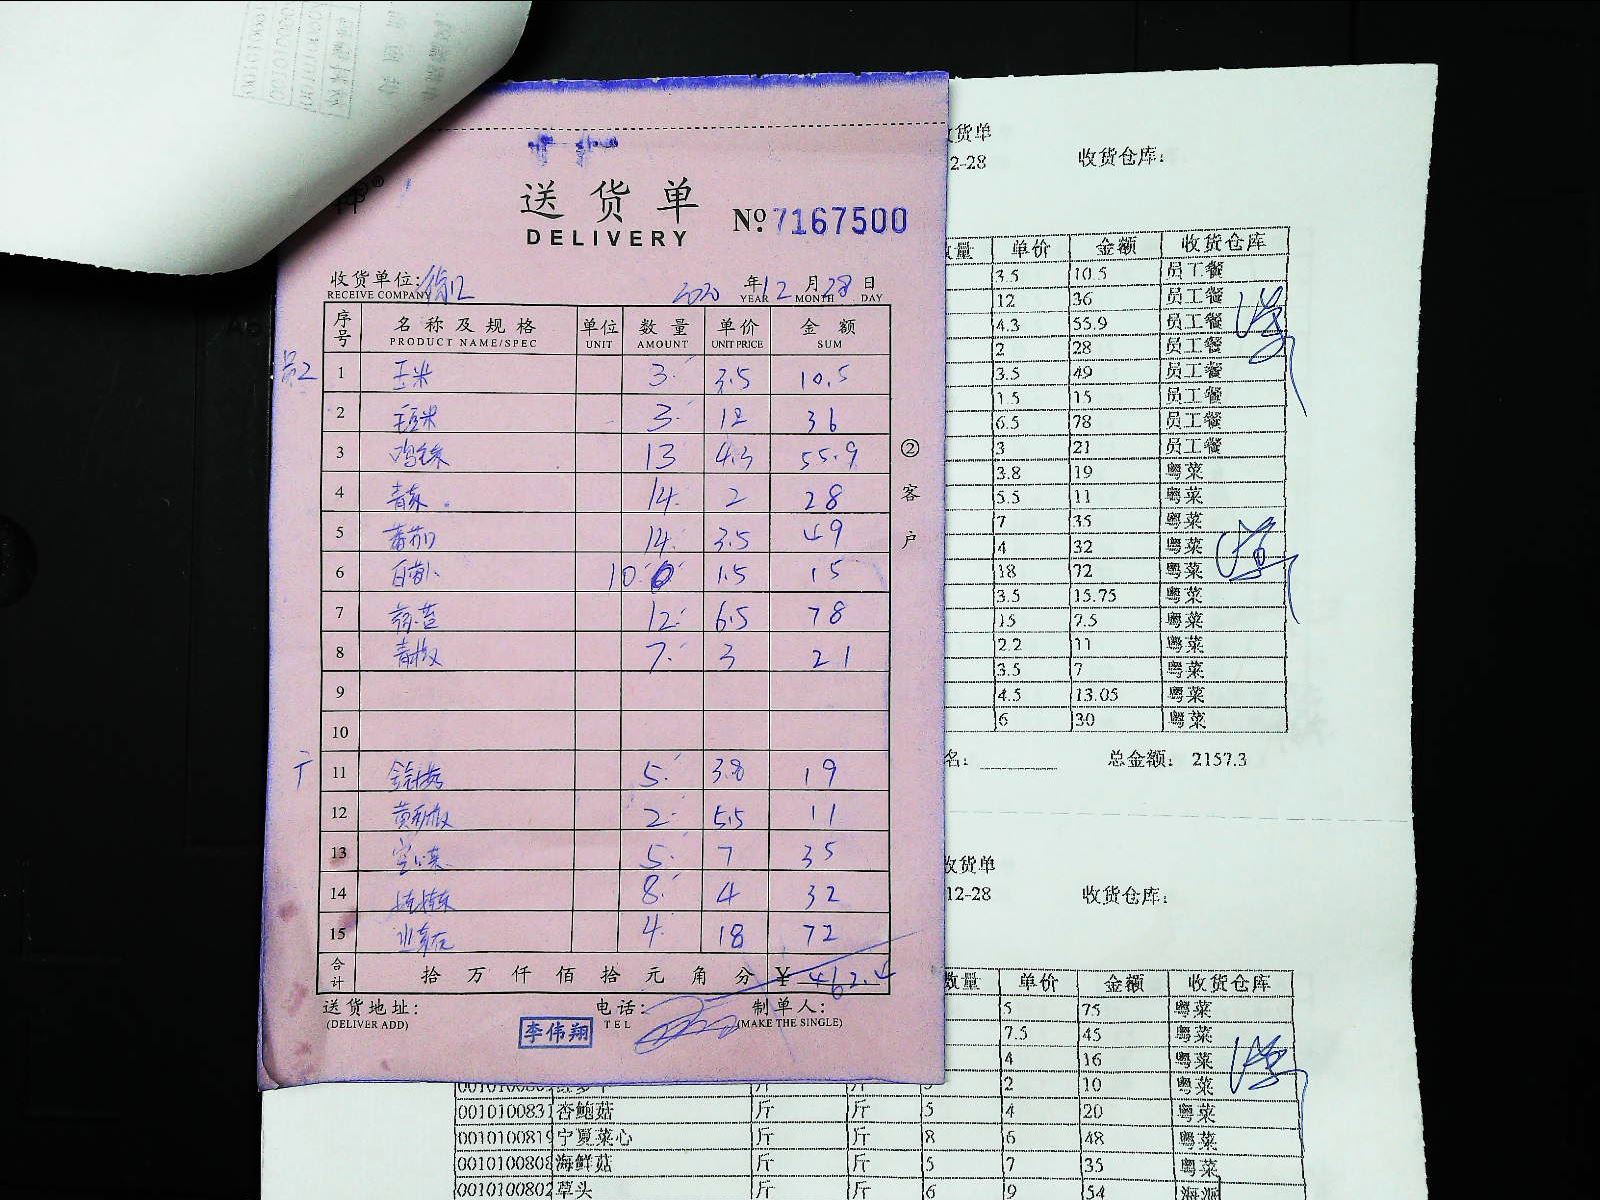 送货单
DELIVERY
№ 7167500
收货单位:
RECEIVE COMPANY
2020 年 12 月 28 日
YEAR MONTH DAY
序号 名称及规格 单位 数量 单价 金额
PRODUCT NAME/SPEC UNIT AMOUNT UNIT PRICE SUM
1 玉米 3 3.5 10.5
2 毛豆米 3 12 36
3 13 4.3 55.9
4 14 2 28
5 蕃茄 14 3.5 49
6 白萝卜 10 1.5 15
7 12 6.5 78
8 青椒 7 3 21
9
10
11 5 3.8 19
12 黄彩椒 2 5.5 11
13 空心菜 5 7 35
14 8 4 32
15 4 18 72
合计 拾万仟佰拾元角分 ¥ 462.4
② 客户
送货地址: 电话: 制单人:
(DELIVER ADD) TEL (MAKE THE SINGLE)
李伟翔
货单
2-28 收货仓库:
量 单价 金额 收货仓库
3.5 10.5 员工餐
12 36 员工餐
4.3 55.9 员工餐
2 28 员工餐
3.5 49 员工餐
1.5 15 员工餐
6.5 78 员工餐
3 21 员工餐
3.8 19 粤菜
5.5 11 粤菜
7 35 粤菜
4 32 粤菜
18 72 粤菜
3.5 15.75 粤菜
15 7.5 粤菜
2.2 11 粤菜
3.5 7 粤菜
4.5 13.05 粤菜
6 30 粤菜
名: 总金额: 2157.3
收货单
12-28 收货仓库:
数量 单价 金额 收货仓库
5 75 粤菜
7.5 45 粤菜
4 16 粤菜
2 10 粤菜
0010100831 杏鲍菇 斤 斤 5 4 20 粤菜
0010100819 宁夏菜心 斤 斤 8 6 48 粤菜
001010080 海鲜菇 斤 斤 5 7 35 粤菜
0010100802 草头 斤 斤 6 9 54 海派